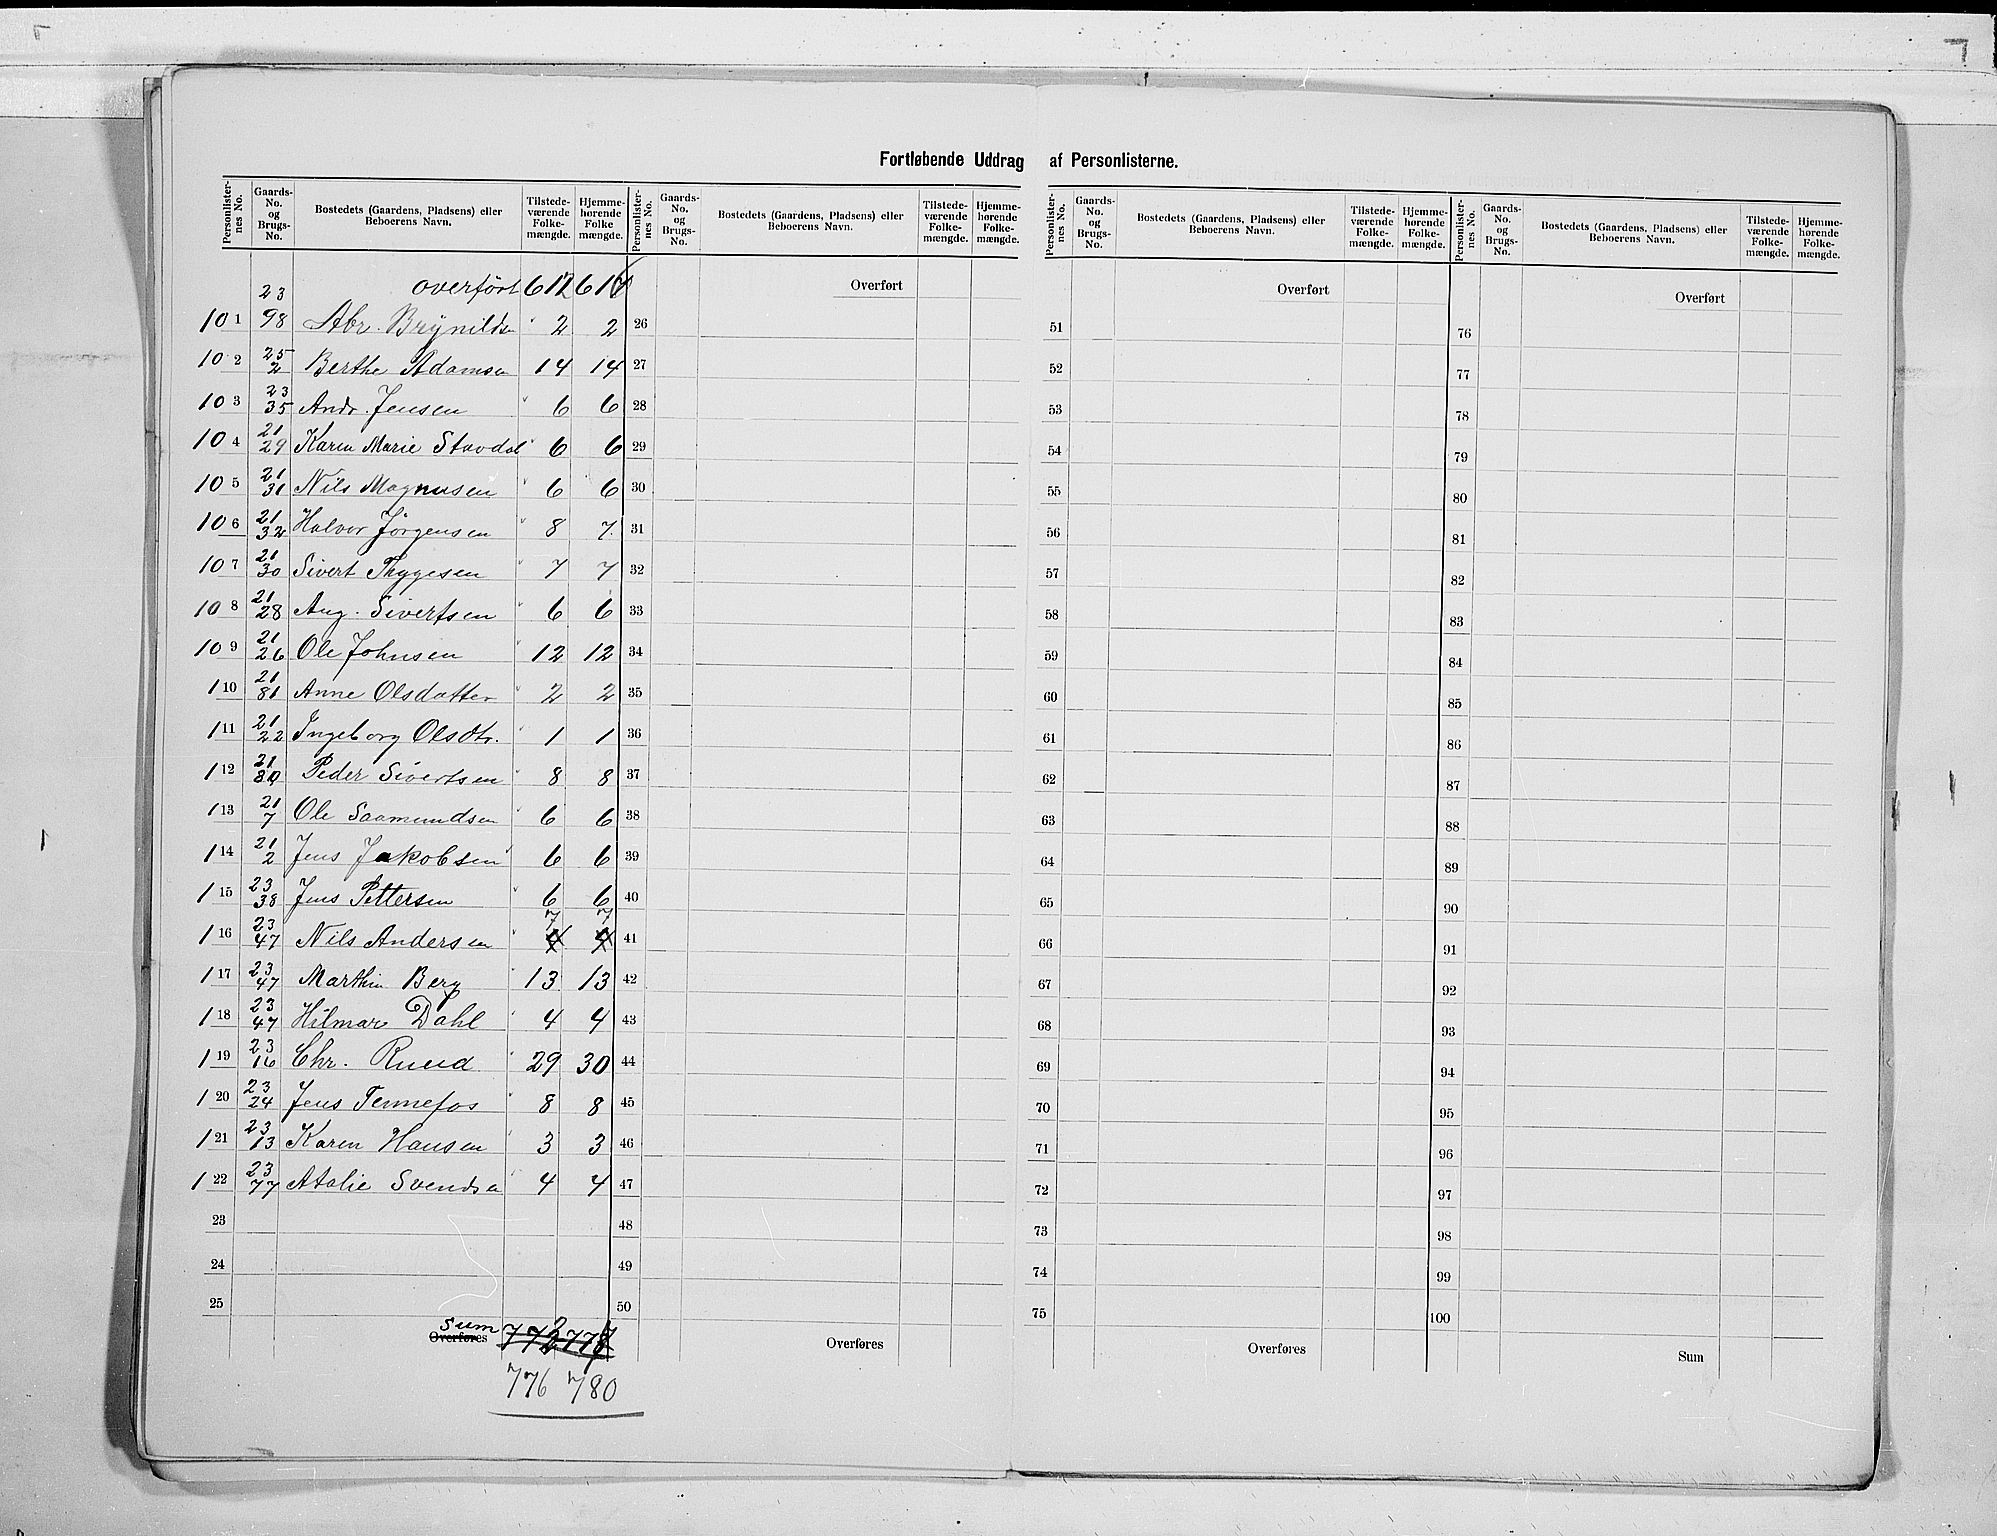 Fortløbende Uddrag af Personlisterne.
Personlisternes No. Gaards-No. og Brugs-No. Bostedets (Gaardens, Pladsens) eller Beboerens Navn. Tilstedeværende Folkemængde. Hjemmehørende Folkemængde.
Personlisternes No. Gaards-No. og Brugs-No. Bostedets (Gaardens, Pladsens) eller Beboerens Navn. Tilstedeværende Folkemængde. Hjemmehørende Folkemængde.
Personlisternes No. Gaards-No. og Brugs-No. Bostedets (Gaardens, Pladsens) eller Beboerens Navn. Tilstedeværende Folkemængde. Hjemmehørende Folkemængde.
Personlisternes No. Gaards-No. og Brugs-No. Bostedets (Gaardens, Pladsens) eller Beboerens Navn. Tilstedeværende Folkemængde. Hjemmehørende Folkemængde.
overført 612 Overført Overført Overført
101 23/98 Abr. Brynildsn 2 2 26 51 76
102 25/2 Berthe Adamsn 14 14 27 52 77
103 23/35 Andr. Jensen 6 6 28 53 78
104 21/29 Karen Marie Stavdal 6 6 29 54 79
105 21/31 Nils Magnusen 6 6 30 55 80
106 21/32 Halvor Jörgensen 8 7 31 56 81
107 21/30 Sivert Thygesen 7 7 32 57 82
108 21/28 Aug. Sivertsen 6 6 33 58 83
109 21/26 Ole Johnsen 12 12 34 59 84
110 21/81 Anne Olsdatter 2 2 35 60 85
111 21/22 Ingeborg Olsdtr. 1 1 36 61 86
112 21/80 Peder Sivertsen 8 8 37 62 87
113 21/7 Ole Saamundsen 6 6 38 63 88
114 21/2 Jens Jakobsen 6 6 39 64 89
115 23/38 Jens Pettersen 6 6 40 65 90
116 23/47 Nils Andersen 7 7 41 66 91
117 23/47 Marthin Berg 13 13 42 67 92
118 23/47 Hilmar Dahl 4 4 43 68 93
119 23/16 Chr. Ruud 29 30 44 69 94
120 23/24 Jens Tennefos 8 8 45 70 95
121 23/13 Karen Hansen 3 3 46 71 96
122 23/77 Atalie Svendsn 4 4 47 72 97
23 48 73 98
24 49 74 99
25 50 75 100
sum
Overføres 772 Overføres Overføres Sum
776 780